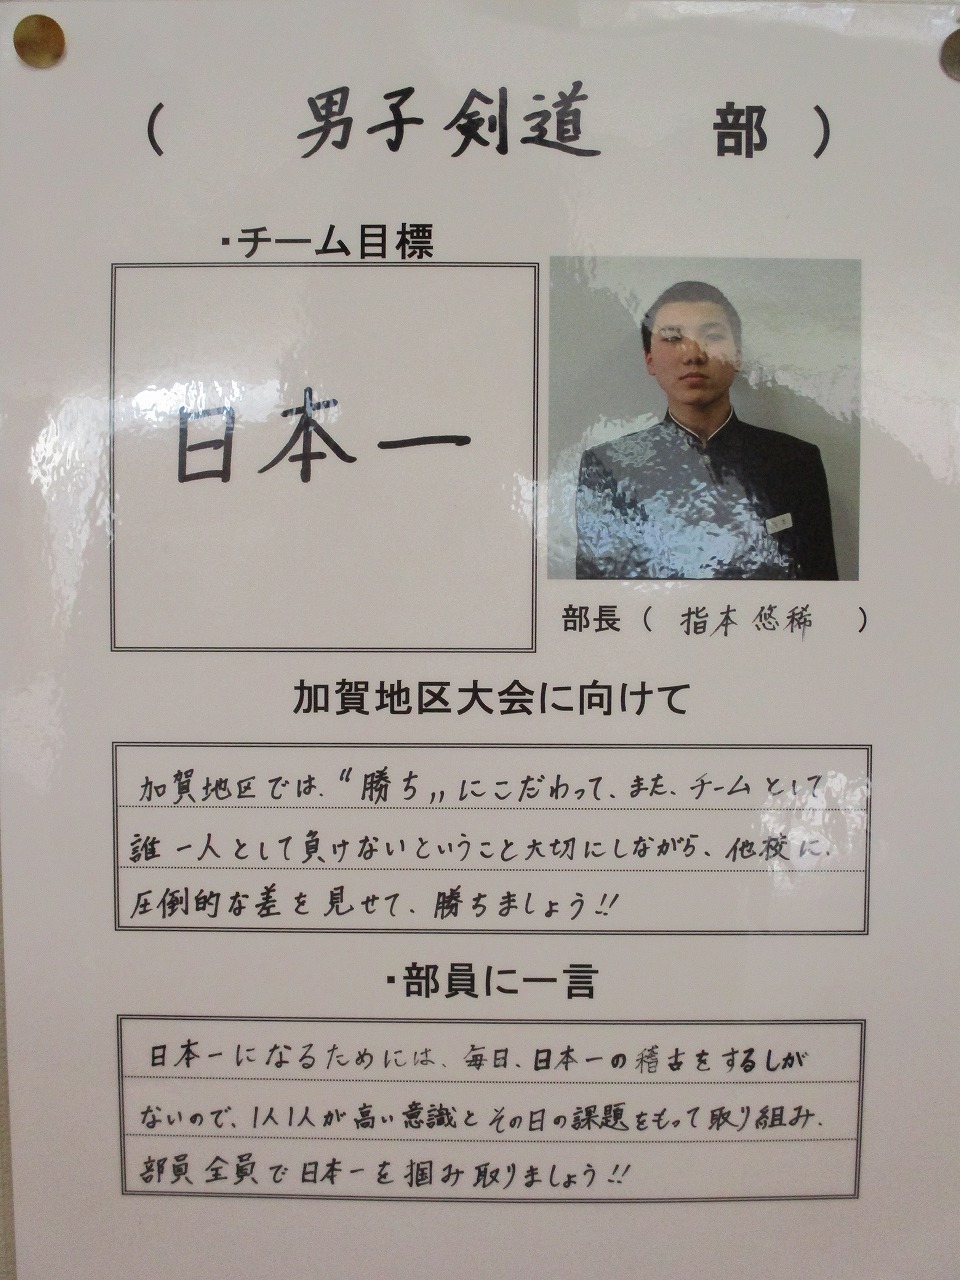 （ 男子剣道 部 ）
・チーム目標
日本一
部長（ 指本 悠稀 ）
加賀地区大会に向けて
加賀地区では、〝勝ち〟にこだわって、また、チームとして
誰一人として負けないということ大切にしながら、他校に、
圧倒的な差を見せて、勝ちましょう!!
・部員に一言
日本一になるためには、毎日、日本一の稽古をするしが
ないので、1人1人が高い意識とその日の課題をもって取り組み、
部員全員で日本一を掴み取りましょう!!